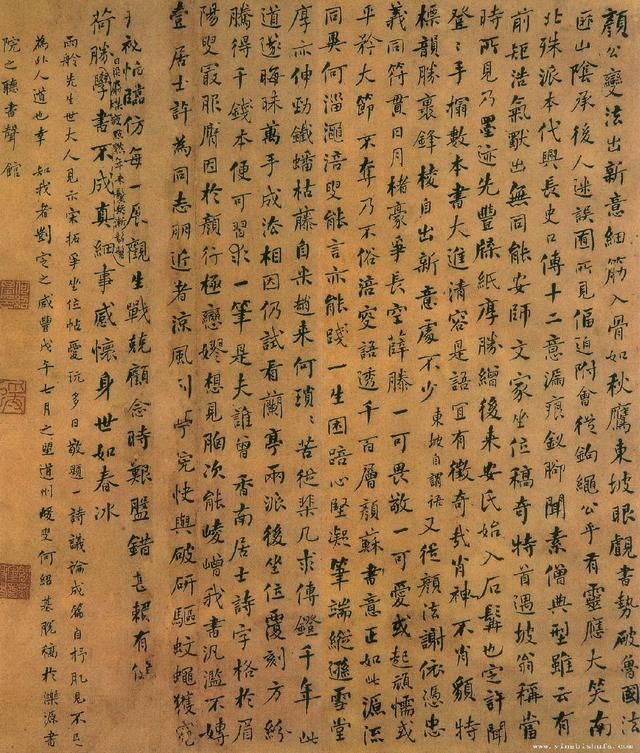 顏公變法出新意細筋入骨如秋鷹東坡眼覷書勢破魯國法
匪山陰承後人迷誤圄所見偪迫附會從鉤繩公乎有靈應大笑南
北殊派本代興長史口傳十二意漏痕釵腳聞素僧典型雖云有
前矩浩氣出無同能安師文家坐位稿奇特首遇坡翁稱當
時所見乃墨迹先豐牋紙摩勝繒後来安民始入石髯也定許聞
登〻手搨數本書大進清容是語宜有徵奇哉肖神不肖貌特
標韻勝裹鋒棱自出新意處不少東坡自謂語又從顏法謝依憑忠
義同符貫日月楮豪爭長空薛滕一可畏敬一可愛或起頑懦或
平矜大節不奪乃不俗涪叟語透千百層顏蘇書意正如此源流
同異何淄澠涪叟能言亦能踐一生困踣心堅凝筆端縱遜雪堂
厚亦伸勁鐵蟠枯藤自米趙来何瑣〻苦從棐几求傳鐙千年此
道遂晦昧萬手成法相因仍試看蘭亭兩派後坐位覆刻方紛
騰得千錢本便可習求一筆是夫誰曾香南居士詩字格於眉
陽叟最服膺因於顏行極戀嫪想見胸次能崚嶒我書汎濫不專
壹居士許為同志朋近者涼風到亭院快與破研驅蚊蠅獲
秘帖臨仿每一展觀生戰兢顧念時艱盤錯甚賴有
荷勝學書不成真細事感懷身世如春冰
雨舲先生世大人見示宋拓爭坐位帖愛玩多日敬題一詩議論成篇自抒肌見不足
為外人道也幸 如我者劉定之咸豐戊午七月之望道州蝯叟何紹基脫稿於濼源書
院之聽書聲館
www.yingbishufa.com